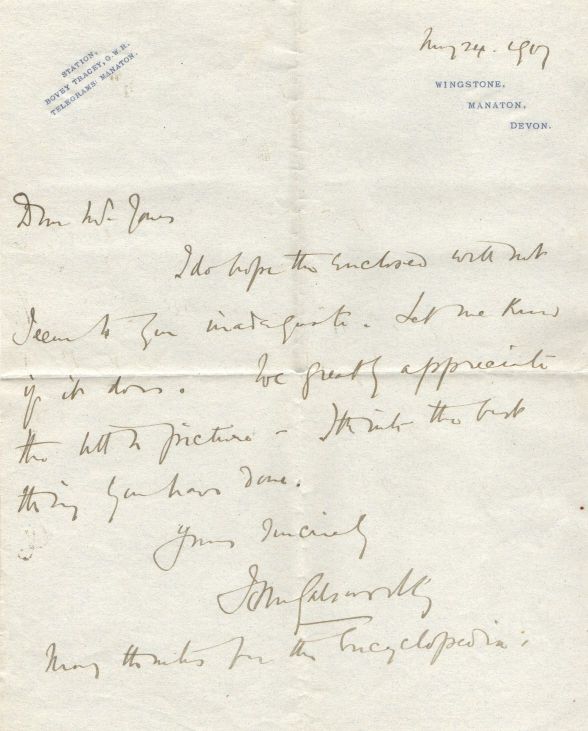 STATION,
BOVEY TRACEY, G.W.R.
TELEGRAMS: MANATON.
May 24. 1907
WINGSTONE,
MANATON,
DEVON.
Dear Mr Jones
I do hope the enclosed will not
seem to you inadequate. Let me know
if it does. We greatly appreciate
the little picture – I think the best
thing you have done.
Yours sincerely
John Galsworthy
Many thanks for the Encyclopedia.